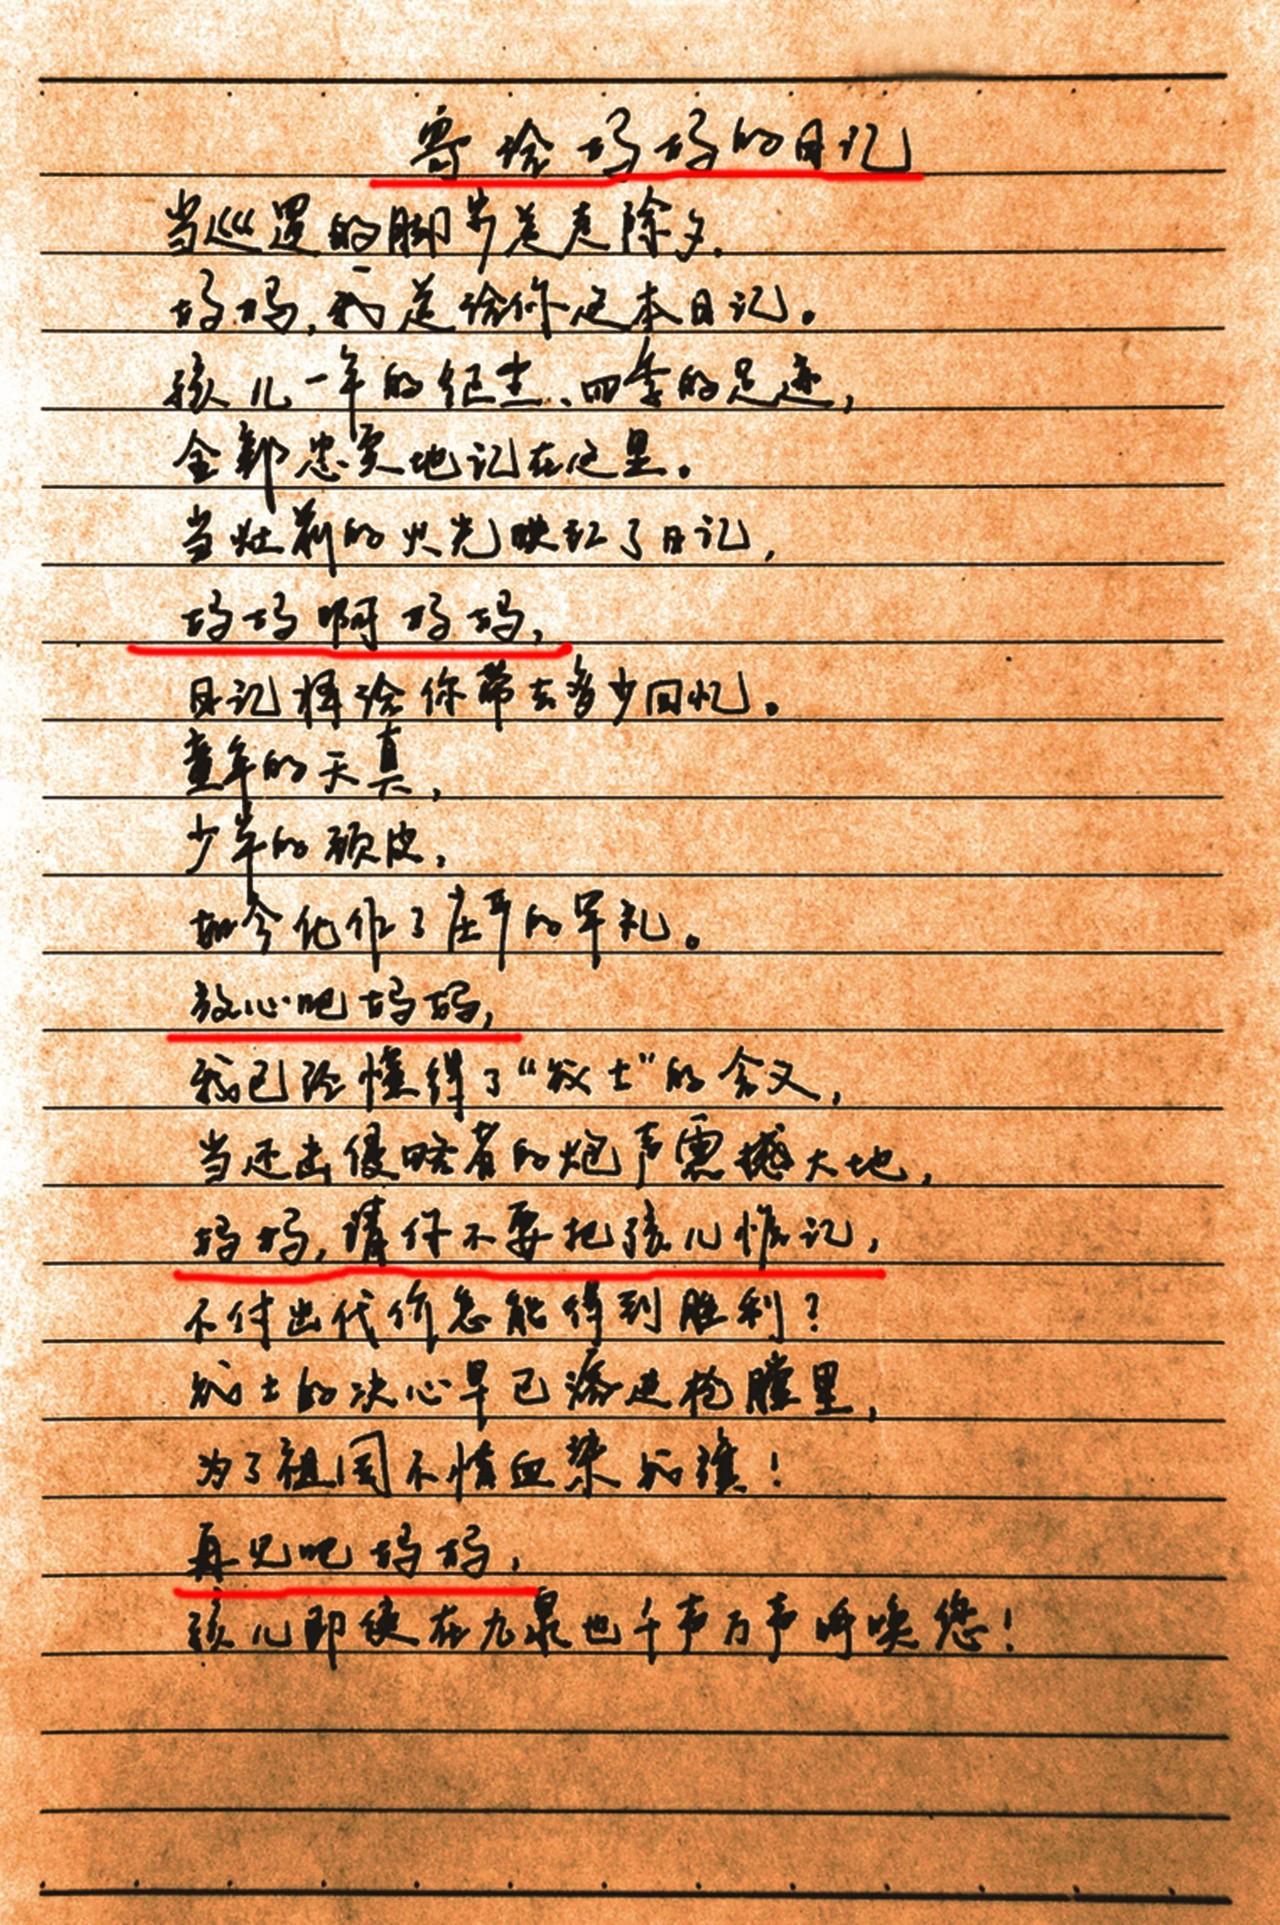 寄给妈妈的日记
当巡逻的脚步送走除夕,
妈妈,我送给你这本日记。
孩儿一年的纪实、四季的足迹,
全部忠实地记在这里。
当灶前的火光映红了日记,
妈妈啊妈妈,
日记将给你带去多少回忆。
童年的天真,
少年的顽皮,
如今化作了庄严的军礼。
放心吧妈妈,
我已经懂得了“战士”的含义,
当还击侵略者的炮声震撼大地,
妈妈,请你不要把孩儿惦记,
不付出代价怎能得到胜利?
战士的决心早已溶进枪膛里,
为了祖国不惜血染疆!
再见吧妈妈,
孩儿即使在九泉也千声万声呼唤您!